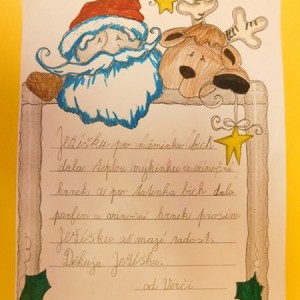 Ježíšku pro maminku bich
dala teplou mykinku a vánoční
hrnek a pro tatínka bich dala
parfem a vánoční hrnek prosim
Ježíšku ať mají radost.
Děkuju Ježíšku.
od Verči